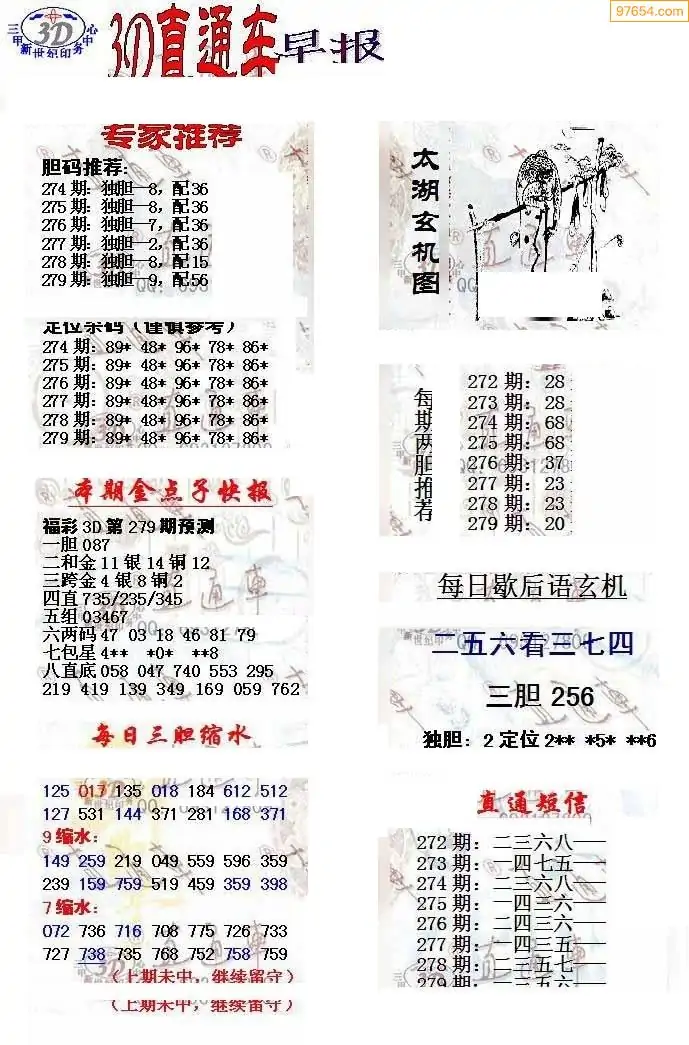 97654.com
三甲 3D 中心
新世纪印务
3D直通车早报
专家推荐
胆码推荐:
274期: 独胆—8, 配36
275期: 独胆—8, 配36
276期: 独胆—7, 配36
277期: 独胆—2, 配36
278期: 独胆—8, 配15
279期: 独胆—9, 配56
定位杀码（谨慎参考）
274期: 89* 48* 96* 78* 86*
275期: 89* 48* 96* 78* 86*
276期: 89* 48* 96* 78* 86*
277期: 89* 48* 96* 78* 86*
278期: 89* 48* 96* 78* 86*
279期: 89* 48* 96* 78* 86*
本期金点子快报
福彩3D第279期预测
一胆087
二和金11银14铜12
三跨金4银8铜2
四直735/235/345
五组03467
六两码47 03 18 46 81 79
七包星4** *0* **8
八直底058 047 740 553 295
219 419 139 349 169 059 762
每日三胆缩水
125 017 135 018 184 612 512
127 531 144 371 281 168 371
9缩水:
149 259 219 049 559 596 359
239 159 759 519 459 359 398
7缩水:
072 736 716 708 775 726 733
727 738 735 768 752 758 759
（上期未中，继续留守）
（上期未中，继续留守）
太湖玄机图
每期两胆推荐
272期: 28
273期: 28
274期: 68
275期: 68
276期: 37
277期: 23
278期: 23
279期: 20
每日歇后语玄机
二五六看三七四
三胆 256
独胆: 2 定位2** *5* **6
直通短信
272期: 二三六八——
273期: 一四七五——
274期: 二三六八——
275期: 一四三六——
276期: 二四三六——
277期: 一四三五——
278期: 二三五七——
279期: 一三五六——